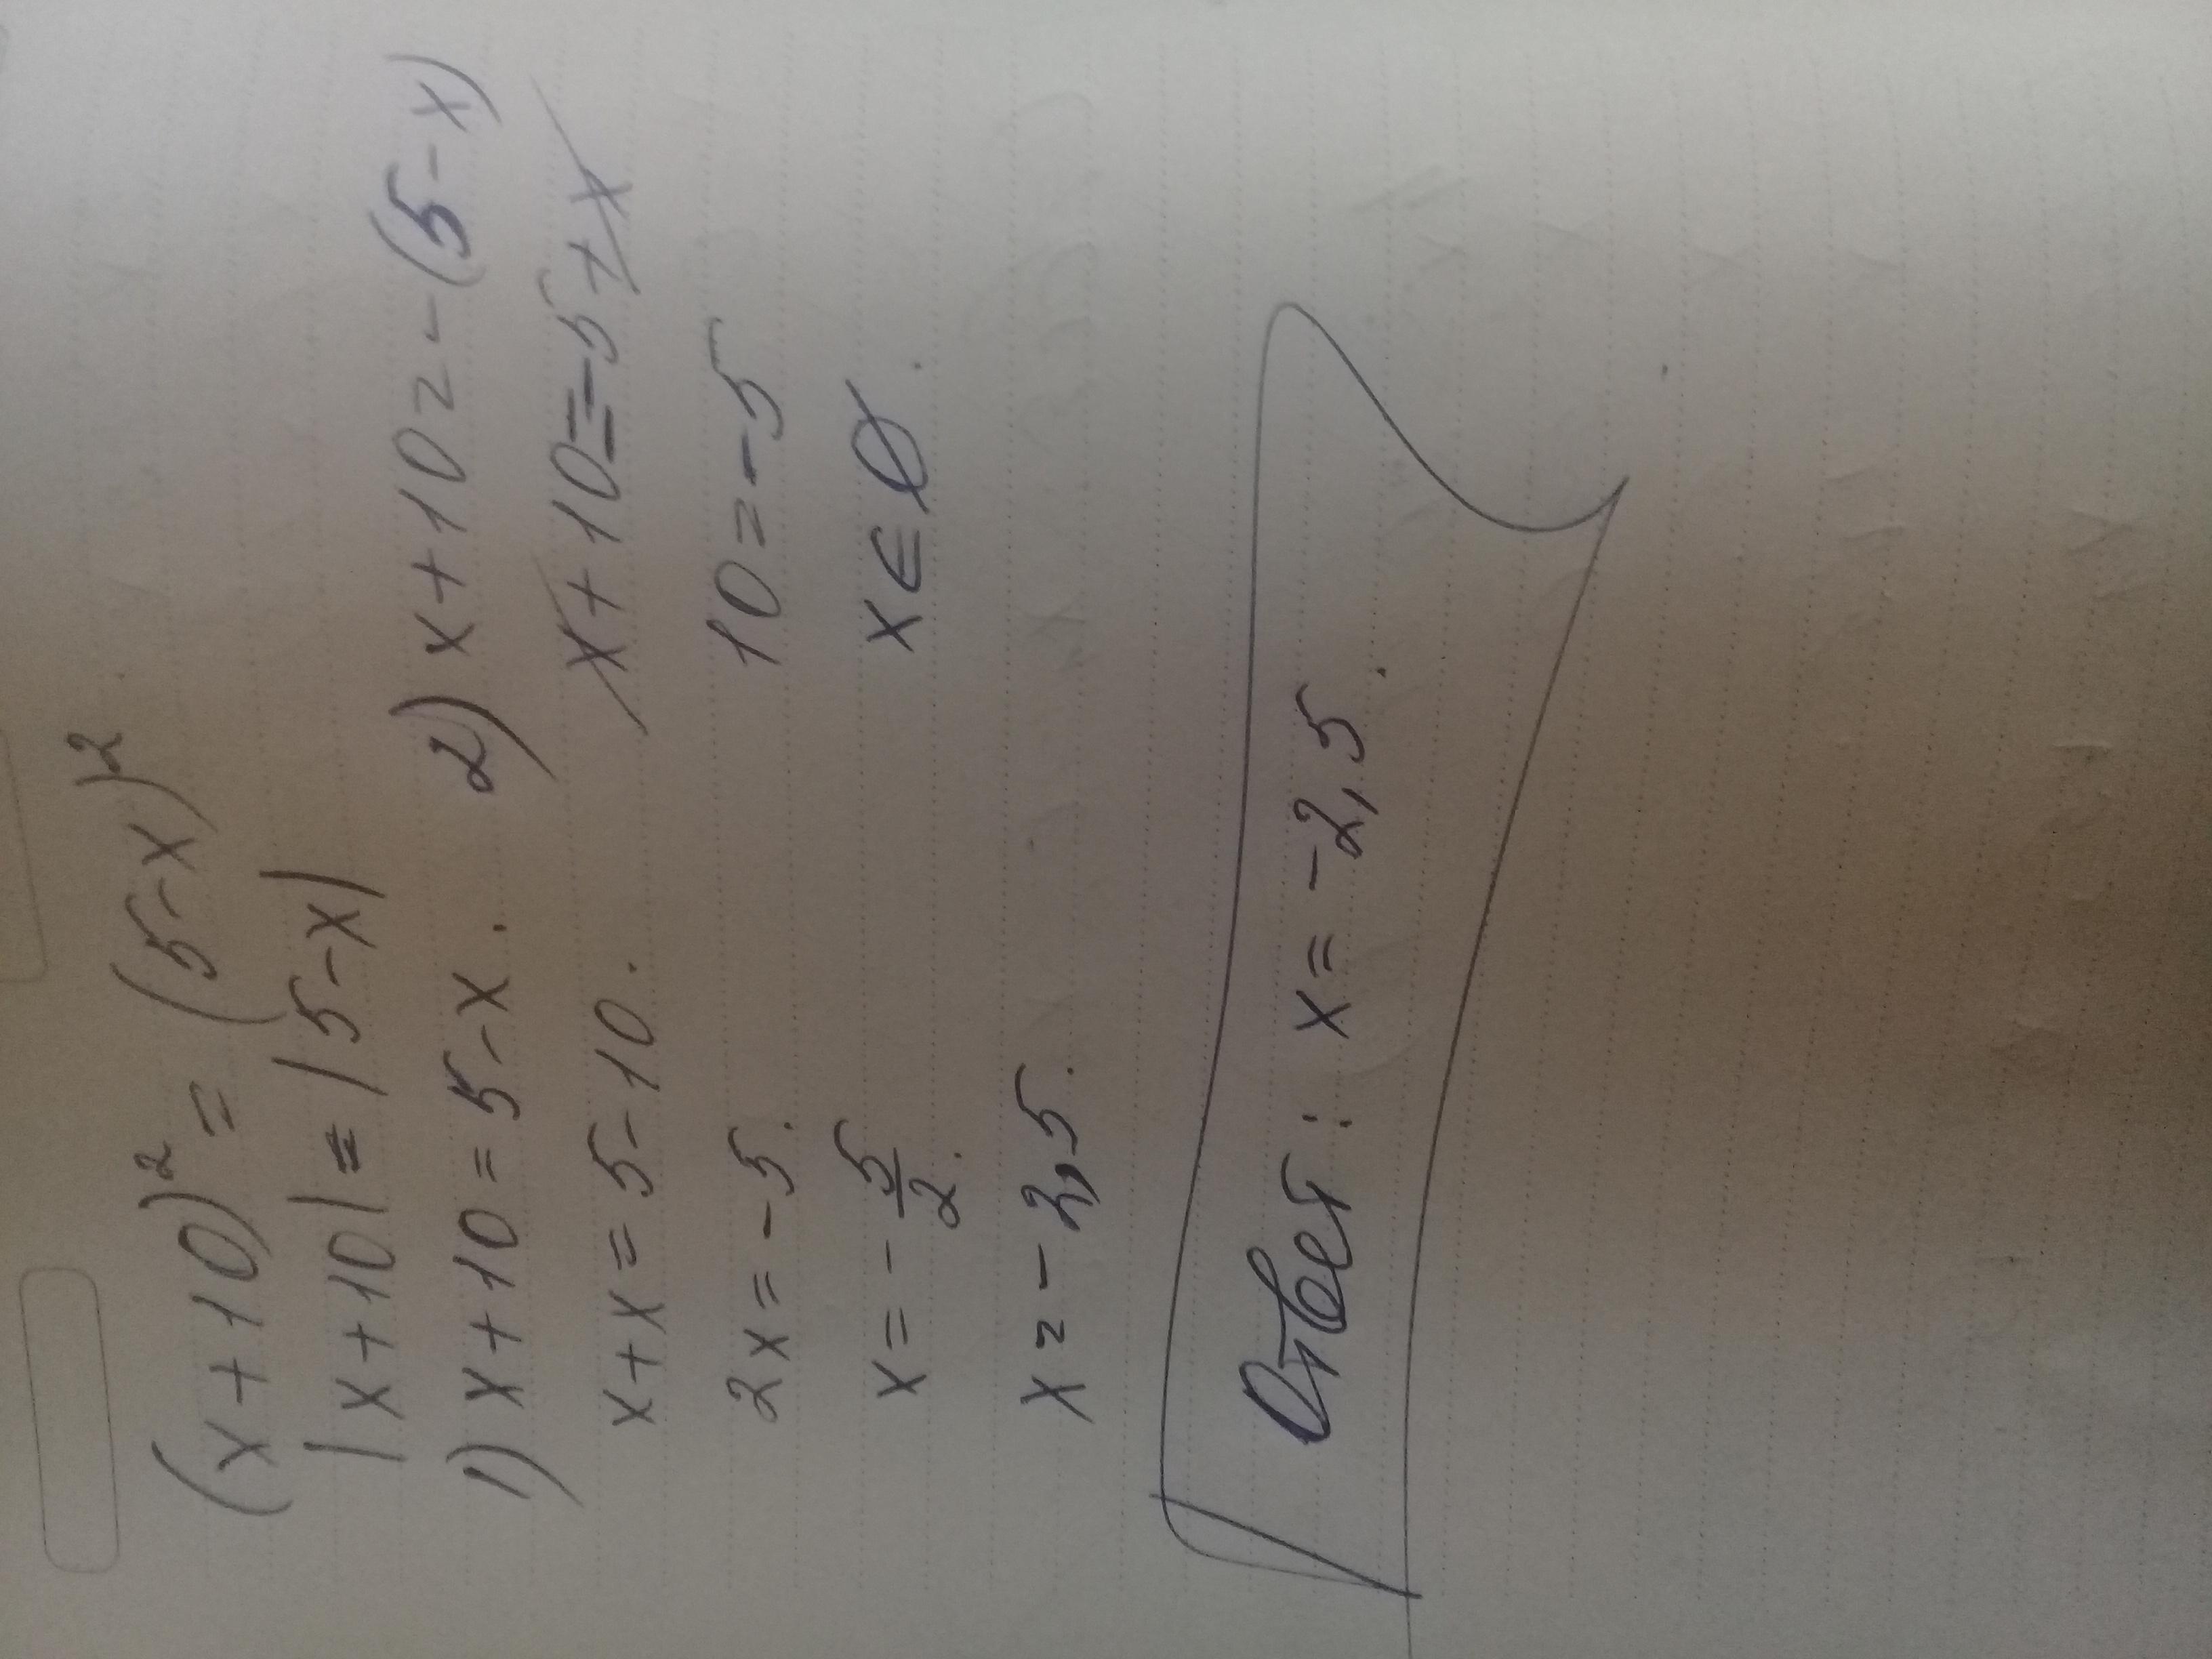 (x+10)² = (5-x)²
|x+10| = |5-x|
1) x+10=5-x. 2) x+10=-(5-x)
x+x=5-10. x+10=-5+x
2x=-5. 10=-5
x=-5/2. x∈∅.
x=-2,5.
Ответ: x=-2,5.